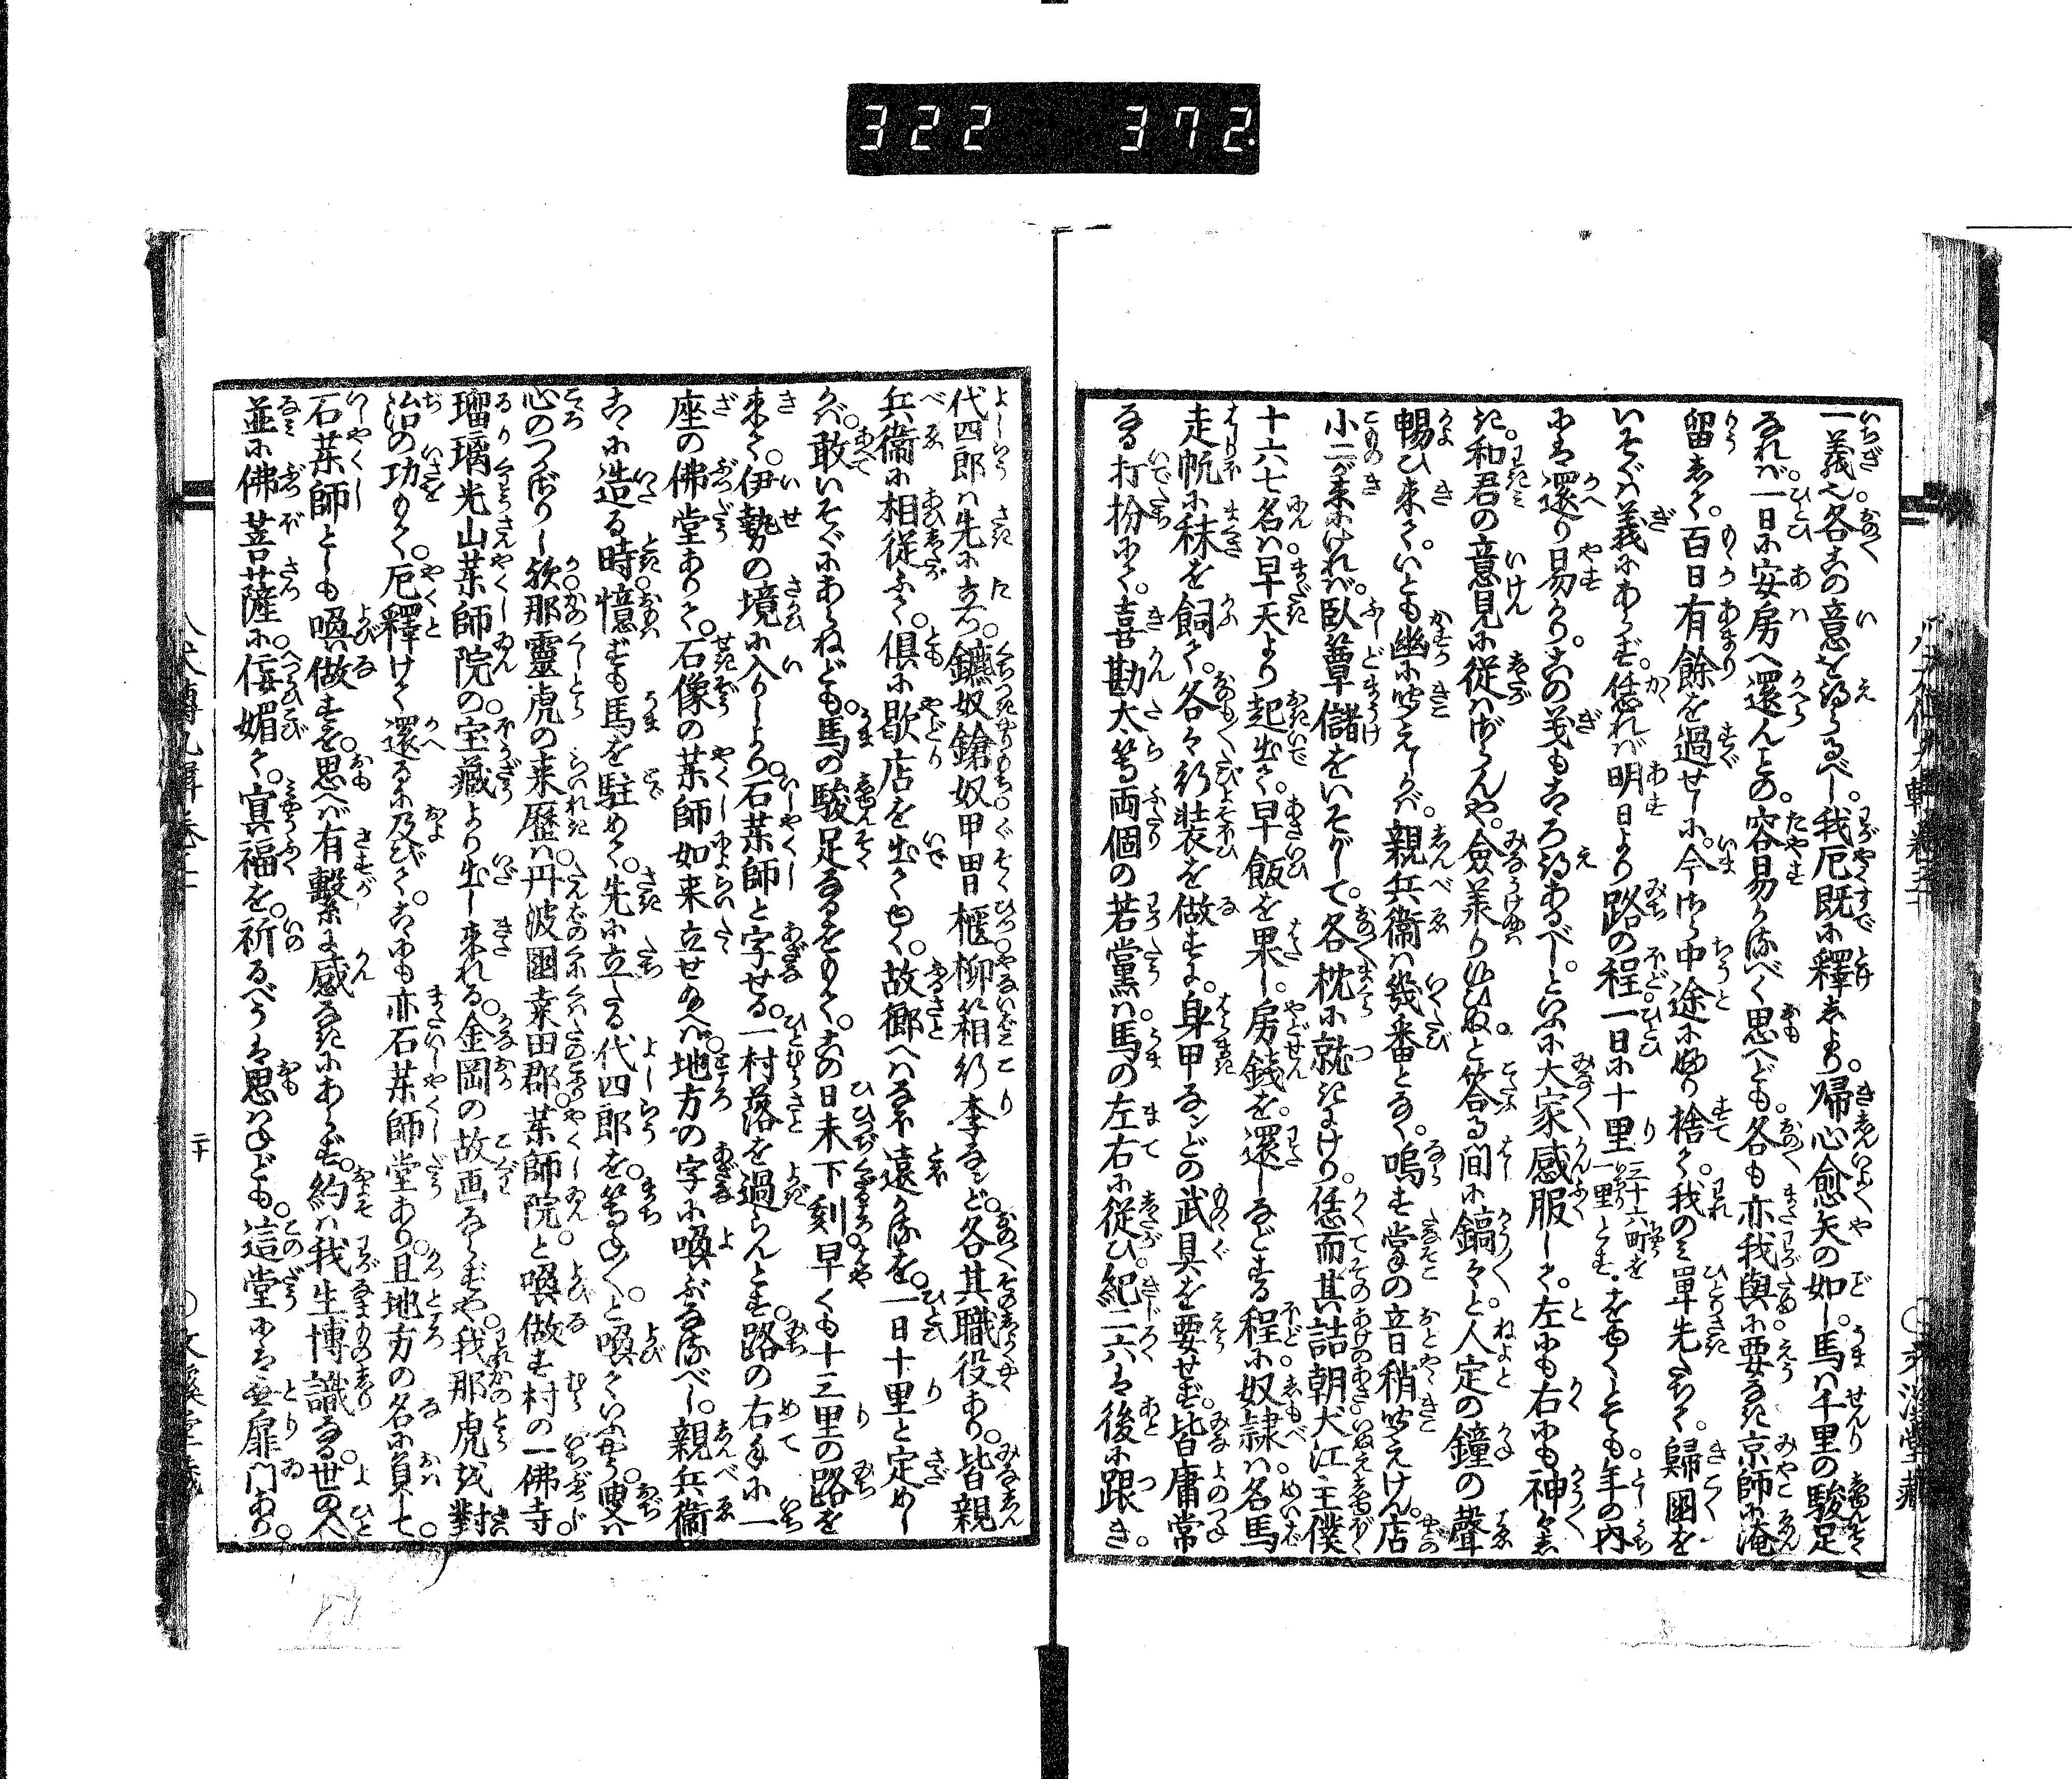 322 372
一義也。各この意を得らるべし。我厄既に釋しより。帰心愈矢の如し。馬は千里の駿足
なれば。一日に安房へ還んとの。容易かるべく思へども。各も亦我與に要なき京師に淹
留しく。百日有餘を過せしに。今はら中途にゆり捨て。我のミ單先たちて。歸國を
いそぐは義にあらず。恁れば明日より路の程一日に十里三十六町を一里とす。をゆくとても。年の内
には還り易かり。この義もこゝろ得あるべし。といふに大家感服して。左にも右にも神々し
き。和君の意見に從はざらんや。僉美りひぬ。と答る間に鎬々と。人定の鐘の聲
暢ひ来て。いとも幽に聞えしかば。親兵衞は幾番となく。鳴す掌の音稍聞えけん。店
小二が来にければ。臥簟儲をいそがして。各枕に就にけり。恁而其詰朝犬江主僕
十六七名は早天より起出て。早飯を果し。房錢を。還しなどする程に。奴隷は名馬
走帆に秣を飼て。各々行装を做すに。身甲などの武具を要せず。皆庸常
なる打扮にて。喜勘太等両個の若黨は。馬の左右に從ひ。紀二六は後に跟き。
代四郎は先に立。鑣奴鎗奴甲冑櫃柳箱行李など。各其職役あり。皆親
兵衞に相從ふて。倶に歇店を出てゆく。故郷へはなほ遠かるを。一日十里と定めし
かば。敢いそぐにあらねども。馬の駿足なるをもて。この日未下刻。早くも十三里の路を
来て。伊勢の境に入りしより。石藥師と字せる。一村落を過らんとす。路の右手に一
座の佛堂ありて。石像の藥師如来立せ給へば。地方の字に喚ぶなるべし。親兵衞
こゝに造る時憶ずも馬を駐めて。先に立たる代四郎を。等々々と。喚ていふやう。叟は
心のつかざりし歟那靈虎の来歴は。丹波國桒田郡。藥師院。と喚做す村の一佛寺。
瑠璃光山藥師院の。宝藏より出し来れる。金岡の故画ならずや。我那虎を對
治の功もて。厄釋けて還るに及びて。こゝにも亦石藥師堂あり。且地方の名に負て。
石藥師としも喚做すを。思へば有繫に感なきにあらず。約は我生博識なる。世の人
並に佛菩薩に侫媚て。冥福を。祈るべうは思はねども。這堂には無扉門あり。